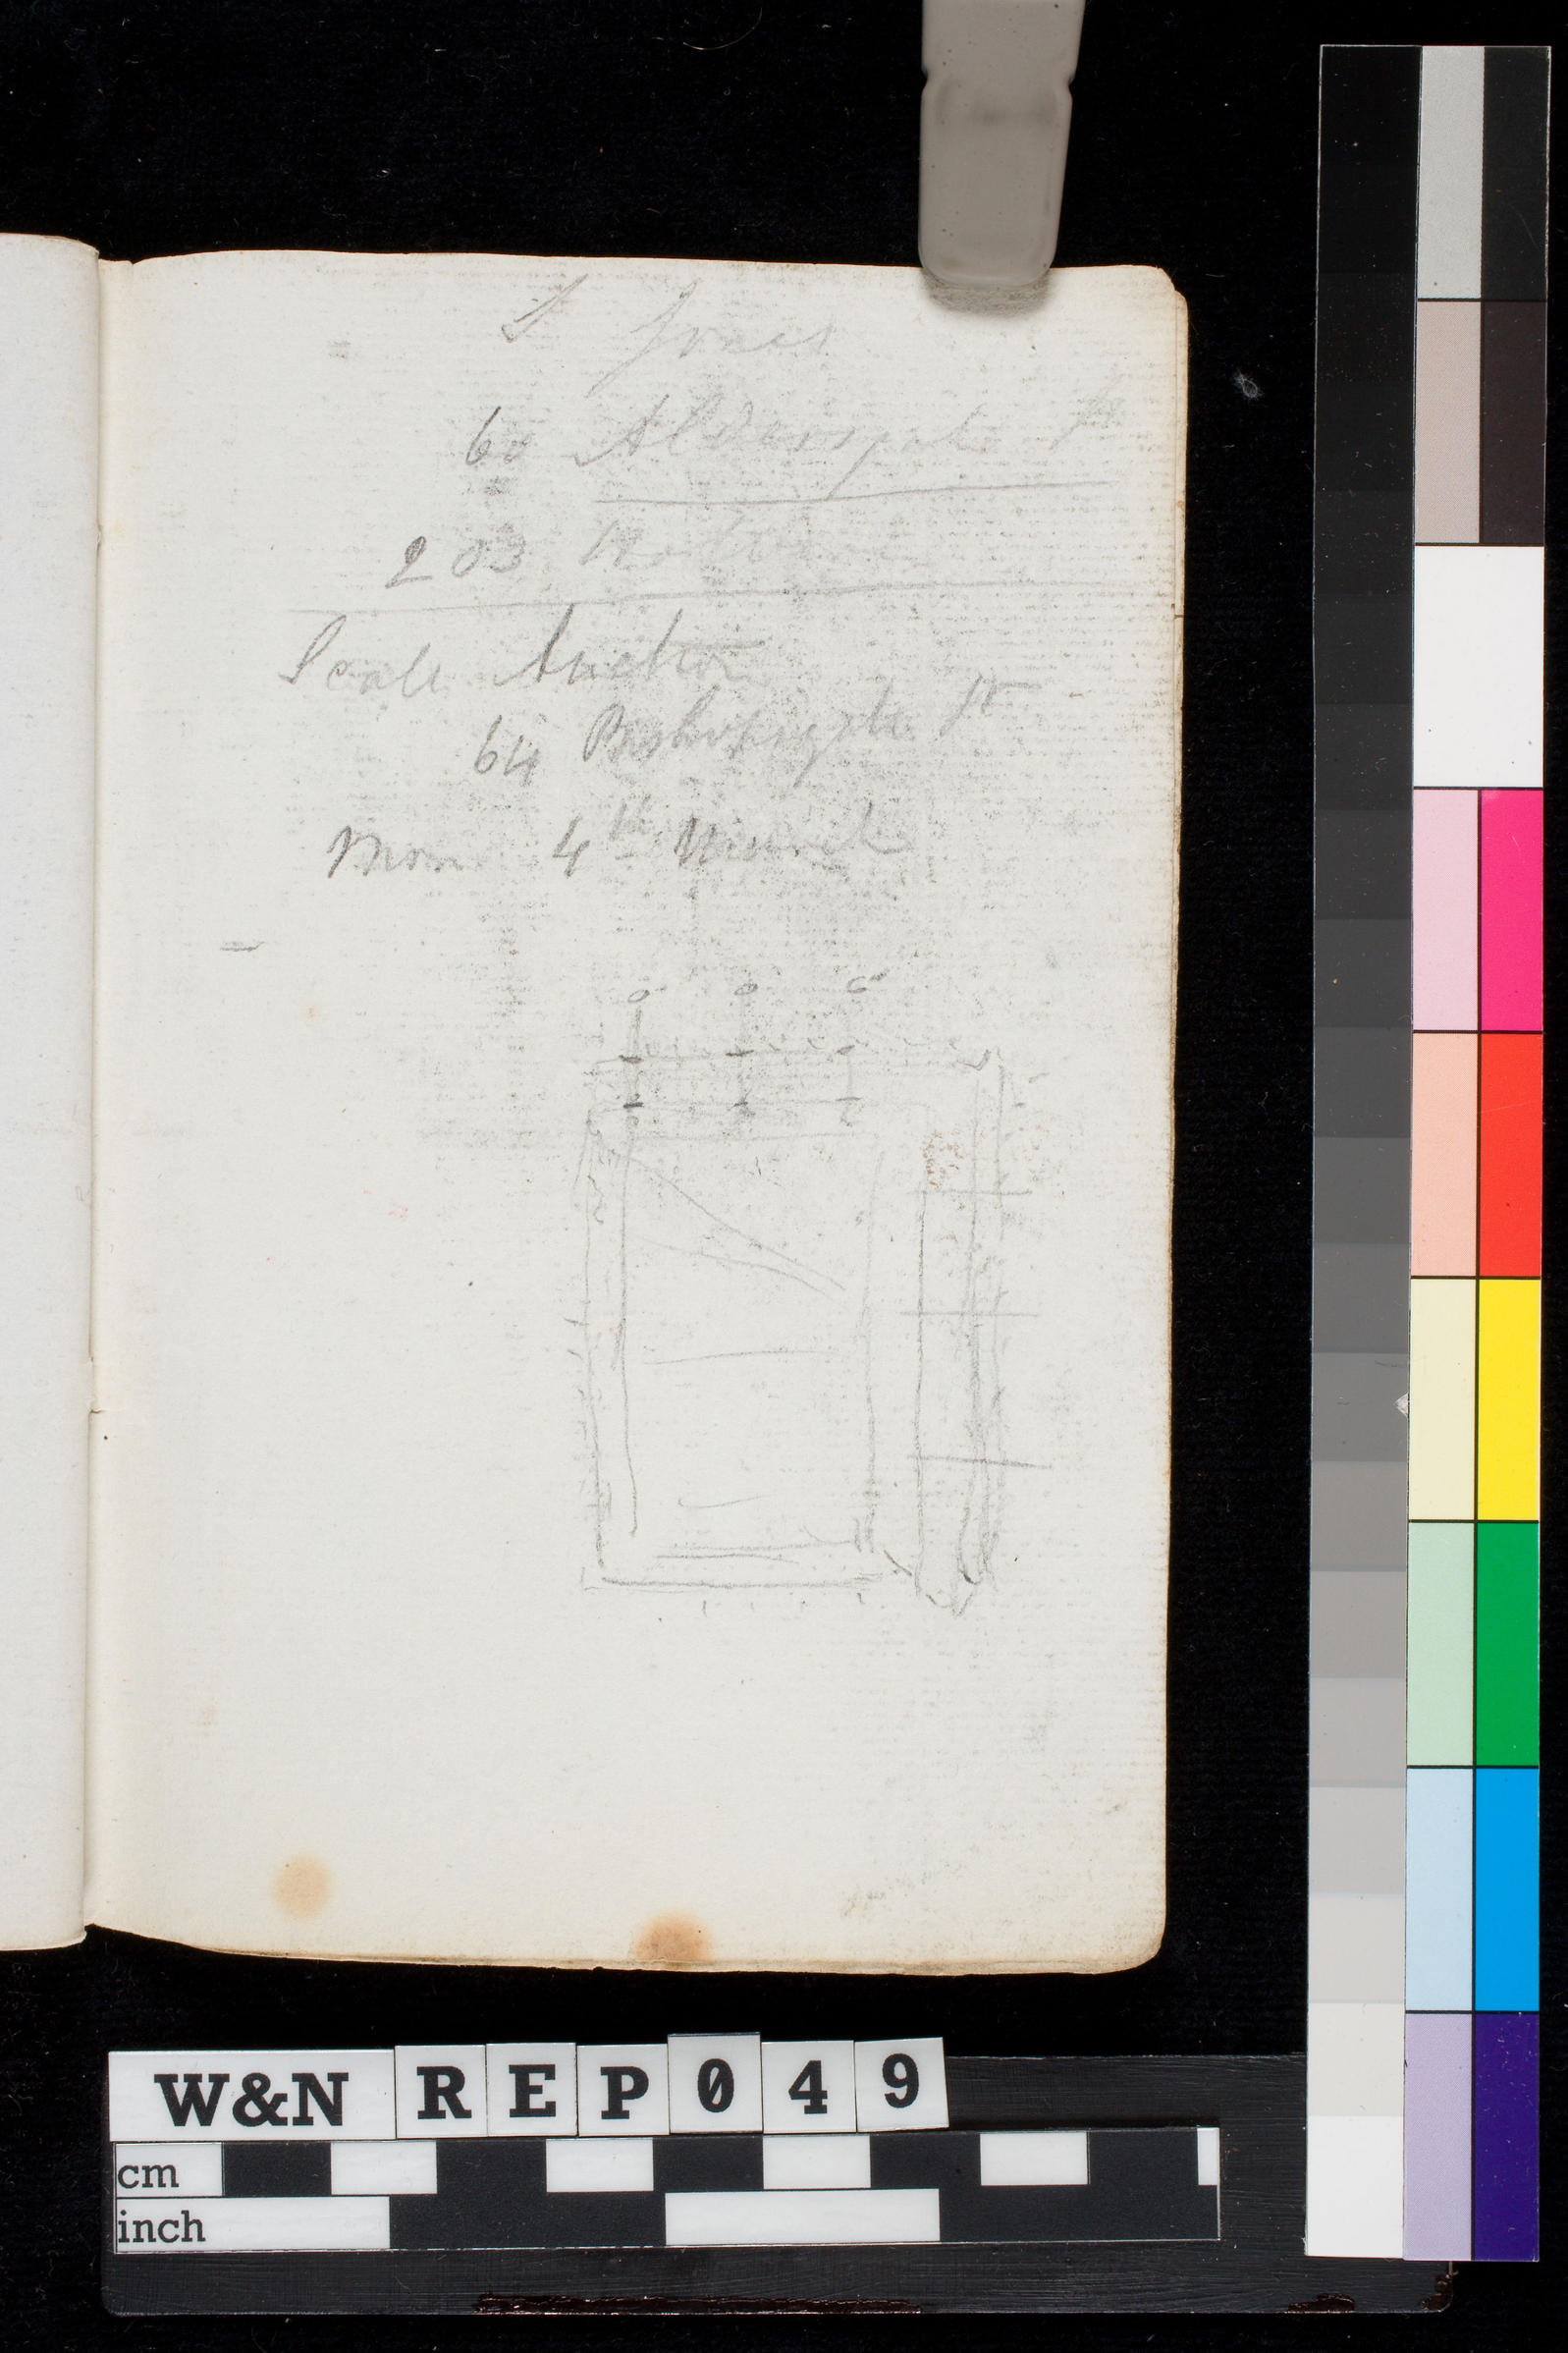 S Jones
60 Aldersgate St
203 Holborn
Scale Auction
64 Bishopsgate St
Mon 4th March
W&N REP049
cm
inch